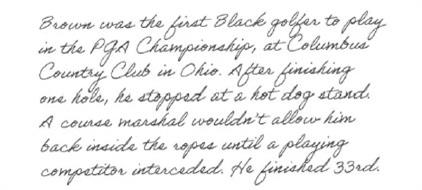 Brown was the first Black golfer to play
in the PGA Championship, at Columbus
Country Club in Ohio. After finishing
one hole, he stopped at a hot dog stand.
A course marshal wouldn't allow him
back inside the ropes until a playing
competitor interceded. He finished 33rd.